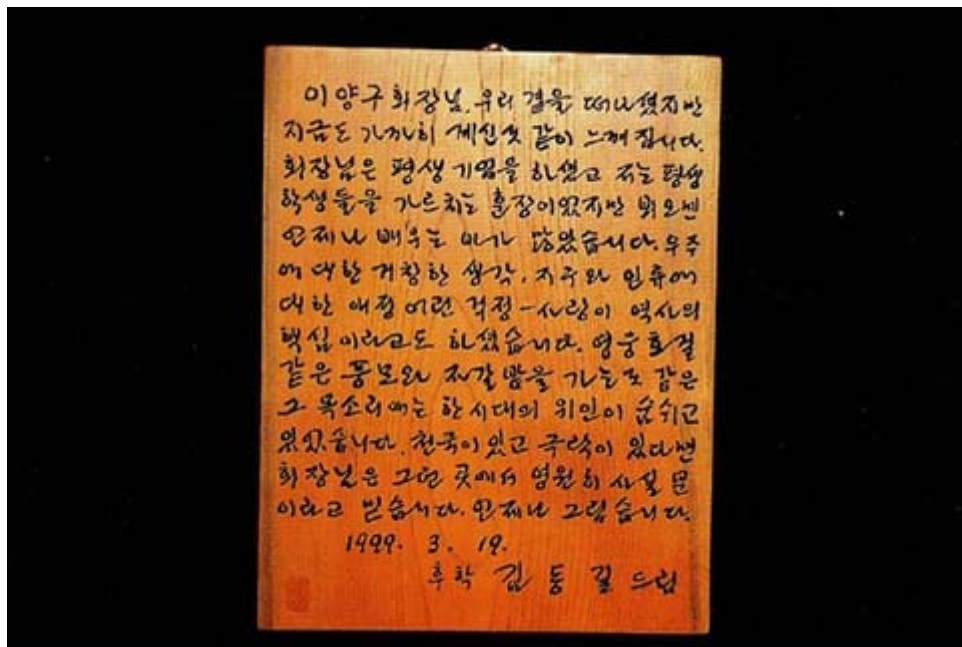 이양구 회장님. 우리 곁을 떠나셨지만
지금도 가까히 계신것 같이 느껴집니다.
회장님은 평생 기업을 하셨고 저는 평생
학생들을 가르치는 훈장이었지만 뵈오면
언제나 배우는 바가 많았습니다. 우주
에 대한 거창한 생각, 지구와 인류에
대한 애정어린 걱정-사랑이 역사의
핵심이라고도 하셨습니다. 영웅호걸
같은 풍모와 자갈밭을 가는듯 같은
그 목소리에는 한 시대의 위인이 숨쉬고
있었습니다. 천국이 있고 극락이 있다면
회장님은 그런 곳에서 영원히 사실 분
이라고 믿습니다. 언제나 그립습니다.
1999. 3. 19.
후학 김동길 드림